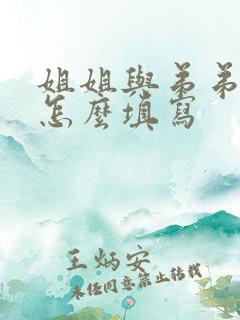 姐姐與弟弟
怎麼填寫
王炳安
未经同意禁止转载